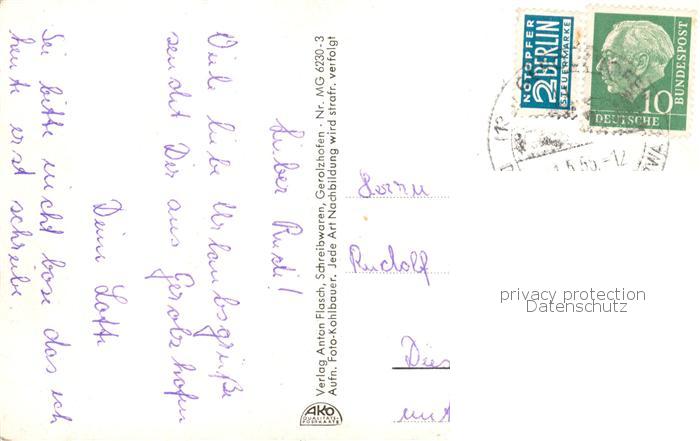 Lieber Rudi!
Viele liebe Urlaubsgrüße
sendet Dir aus Gerolzhofen
Deine Lotte
Sei bitte nicht böse das ich
heute erst schreibe.
Verlag Anton Flasch, Schreibwaren, Gerolzhofen · Nr. MG 6230-3
Aufn. Foto-Kohlbauer. Jede Art Nachbildung wird strafr. verfolgt
AKO
QUALITÄTS-
POSTKARTE
NOTOPFER
2 BERLIN
STEUERMARKE
10
DEUTSCHE
BUNDESPOST
Herrn
Rudolf
privacy protection
Datenschutz